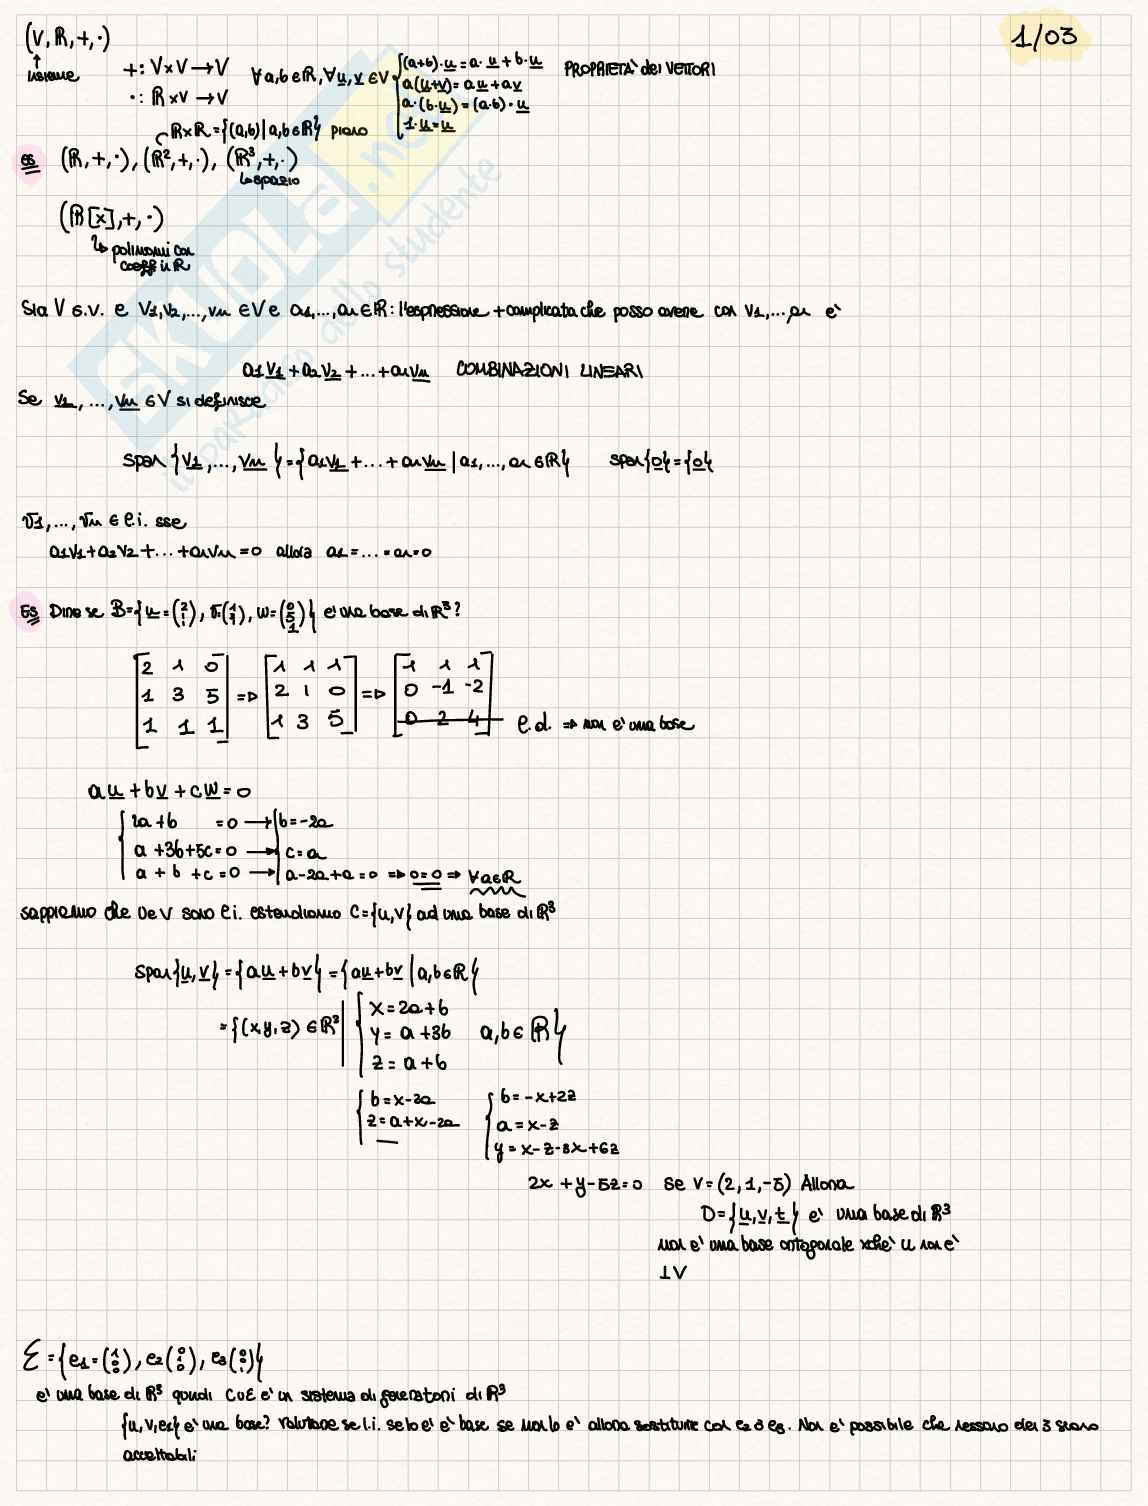 1/03
(V, R, +, ·)
insieme
+: V×V → V
·: R×V → V
∀a,b∈R, ∀u,v∈V { (a+b)·u = a·u + b·u
a(u+v) = au + av
a·(b·u) = (a·b)·u
1·u = u
PROPRIETA' dei VETTORI
R×R = {(a,b) | a,b∈R} piano
es (R,+,·), (R²,+,·), (R³,+,·)
↳ spazio
(R[x],+,·)
↳ polinomi con
coeff in R
Sia V s.v. e V1,V2,...,Vn ∈V e a1,...,an∈R: l'espressione + complicata che posso avere con V1,... è
a1V1 + a2V2 + ... + anVn COMBINAZIONI LINEARI
Se V1, ..., Vn ∈V si definisce
span {V1,...,Vn} = {a1V1 + ... + anVn | a1,...,an∈R} span{0} = {0}
V1,...,Vn ∈ l.i. sse
a1V1 + a2V2 + ... + anVn = 0 allora a1 = ... = an = 0
Es Dire se B={u=(2 1 1), v(1 3 1), w=(0 5 1)} è una base di R³?
[2 1 0 ⇒ [1 1 1 ⇒ [1 1 1
1 3 5 2 1 0 0 -1 -2
1 1 1] 1 3 5] 0 2 4] l.d. ⇒ non è una base
au + bv + cw = 0
{ 2a+b = 0 → { b=-2a
a+3b+5c=0 → c=a
a+b+c=0 → a-2a+a=0 ⇒ 0=0 ⇒ ∀a∈R
sappiamo che u e v sono l.i. estendiamo C={u,v} ad una base di R³
span{u,v} = {au+bv} = {au+bv | a,b∈R}
= {(x,y,z) ∈R³ | { x=2a+b
y=a+3b a,b∈R}
z=a+b
{ b=x-2a { b=-x+2z
z=a+x-2a a=x-z
— y=x-z-3x+6z
2x+y-5z=0 se v=(2,1,-5) Allora
D={u,v,t} è una base di R³
non è una base ortogonale xché u non è
⊥ V
Ɛ={e1=(1 0 0), e2(0 1 0), e3(0 0 1)}
è una base di R³ quindi C∪Ɛ è un sistema di generatori di R³
{u,v,e1} è una base? valutare se l.i. se lo è è base se non lo è allora sostituire con e2 o e3. Non è possibile che nessuno dei 3 siano
accettabili